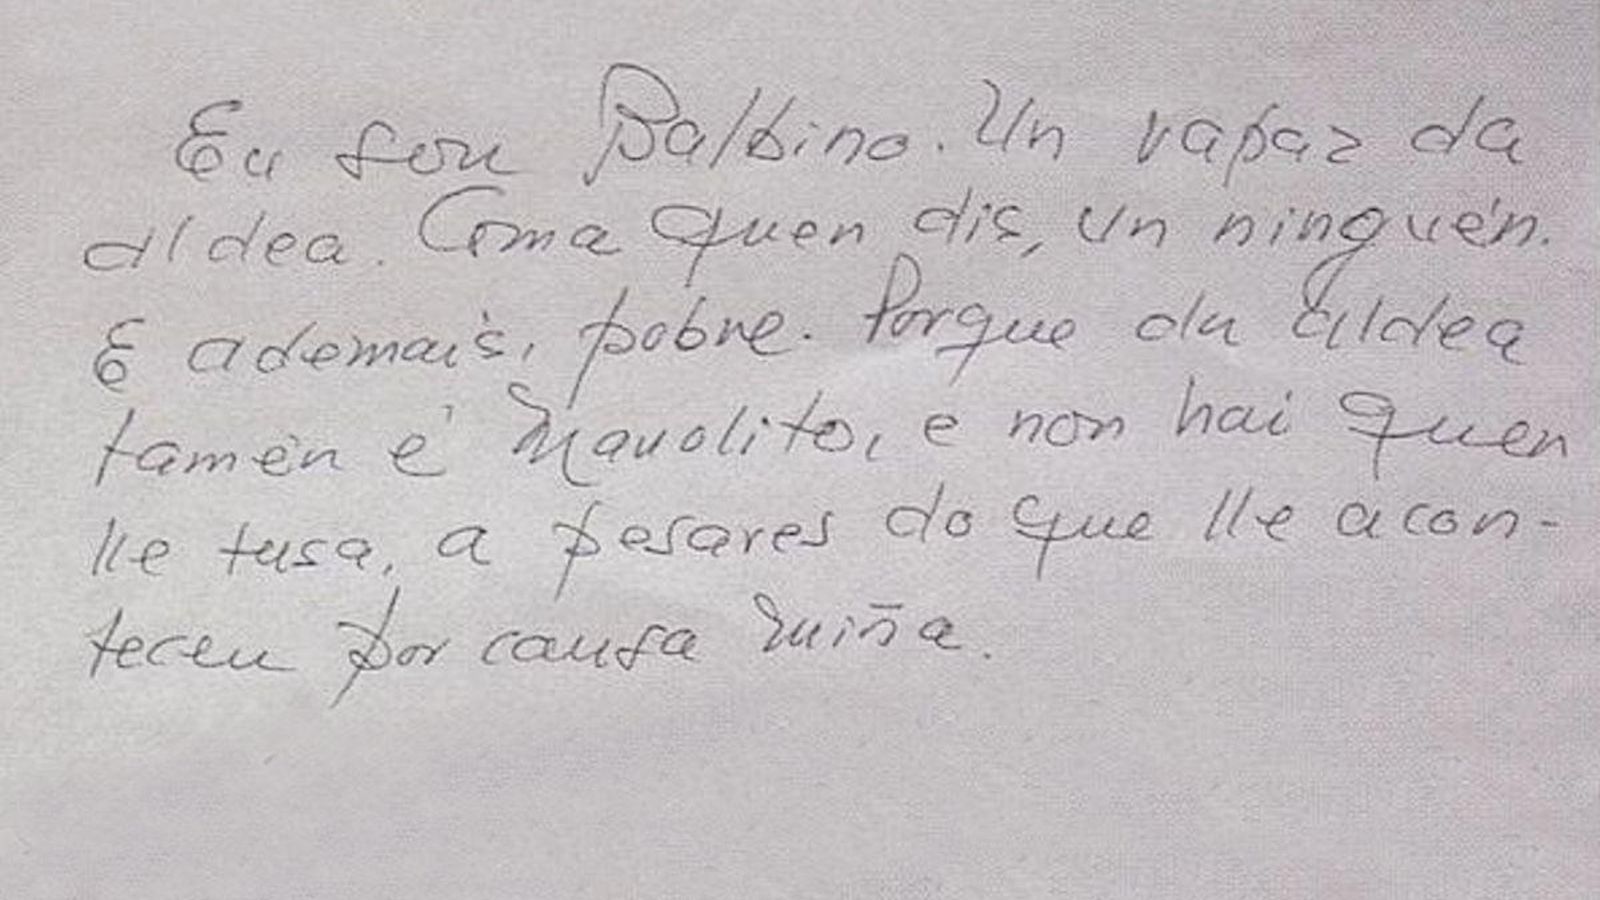 Eu sou Balbino. Un rapaz da
aldea. Coma quen dis, un ninguén.
E ademais, pobre. Porque da aldea
tamén é Manolito, e non hai quen
lle tusa, a pesares do que lle acon-
teceu por causa miña.